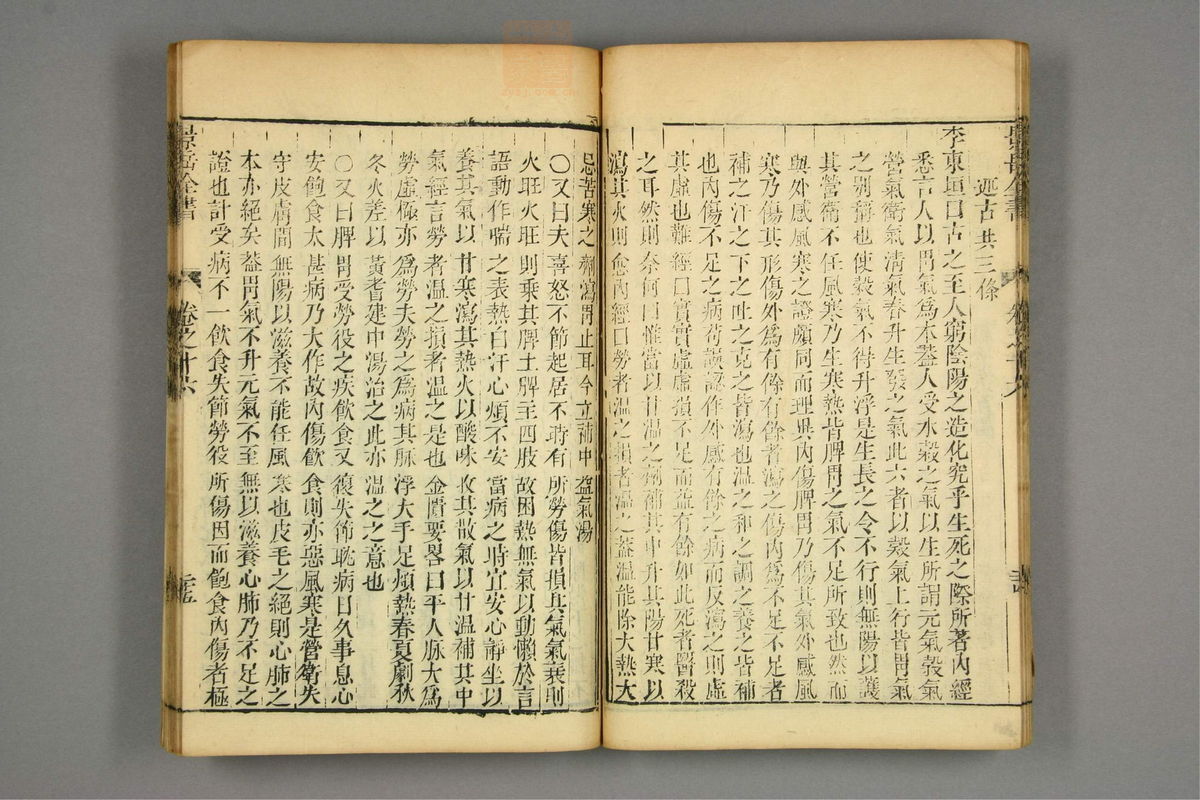 述古共三條
李東垣曰古之至人窮陰陽之造化究乎生死之際所著內經
悉言人以胃氣爲本葢人受水穀之氣以生所謂元氣穀氣
營氣衛氣清氣春升生發之氣此六者以穀氣上行皆胃氣
之別稱也使穀氣不得升浮是生長之令不行則無陽以護
其營衛不任風寒乃生寒熱皆脾胃之氣不足所致也然而
與外感風寒之證頗同而理異內傷脾胃乃傷其氣外感風
寒乃傷其形傷外爲有餘有餘者瀉之傷內爲不足不足者
補之汗之下之吐之克之皆瀉也溫之和之調之養之皆補
也內傷不足之病苟誤認作外感有餘之病而反瀉之則虛
其虛也難經曰實實虛虛損不足而益有餘如此死者醫殺
之耳然則奈何曰惟當以甘溫之劑補其中升其陽甘寒以
瀉其火則愈內經曰勞者溫之損者溫之葢溫能除大熱大
忌苦寒之劑瀉胃止耳今立補中益氣湯
〇又曰夫喜怒不節起居不時有所勞傷皆損其氣氣衰則
火旺火旺則乘其脾土脾主四肢故困熱無氣以動懶於言
語動作喘之表熱自汗心煩不安當病之時宜安心靜坐以
養其氣以甘寒瀉其熱火以酸味收其散氣以甘溫補其中
氣經言勞者溫之損者溫之是也金匱要畧曰平人脉大爲
勞虛極亦爲勞夫勞之爲病其脉浮大手足煩熱春夏劇秋
冬火差以黃耆建中湯治之此亦溫之之意也
〇又曰脾胃受勞役之疾飲食又復失節耽病日久事息心
安飽食太甚病乃大作故內傷飲食則亦惡風寒是營衛失
守皮膚間無陽以滋養不能任風寒也皮毛之絕則心肺之
本亦絕矣葢胃氣不升元氣不至無以滋養心肺乃不足之
證也計受病不一飲食失節勞役所傷因而飽食內傷者極
景岳全書
卷之十六